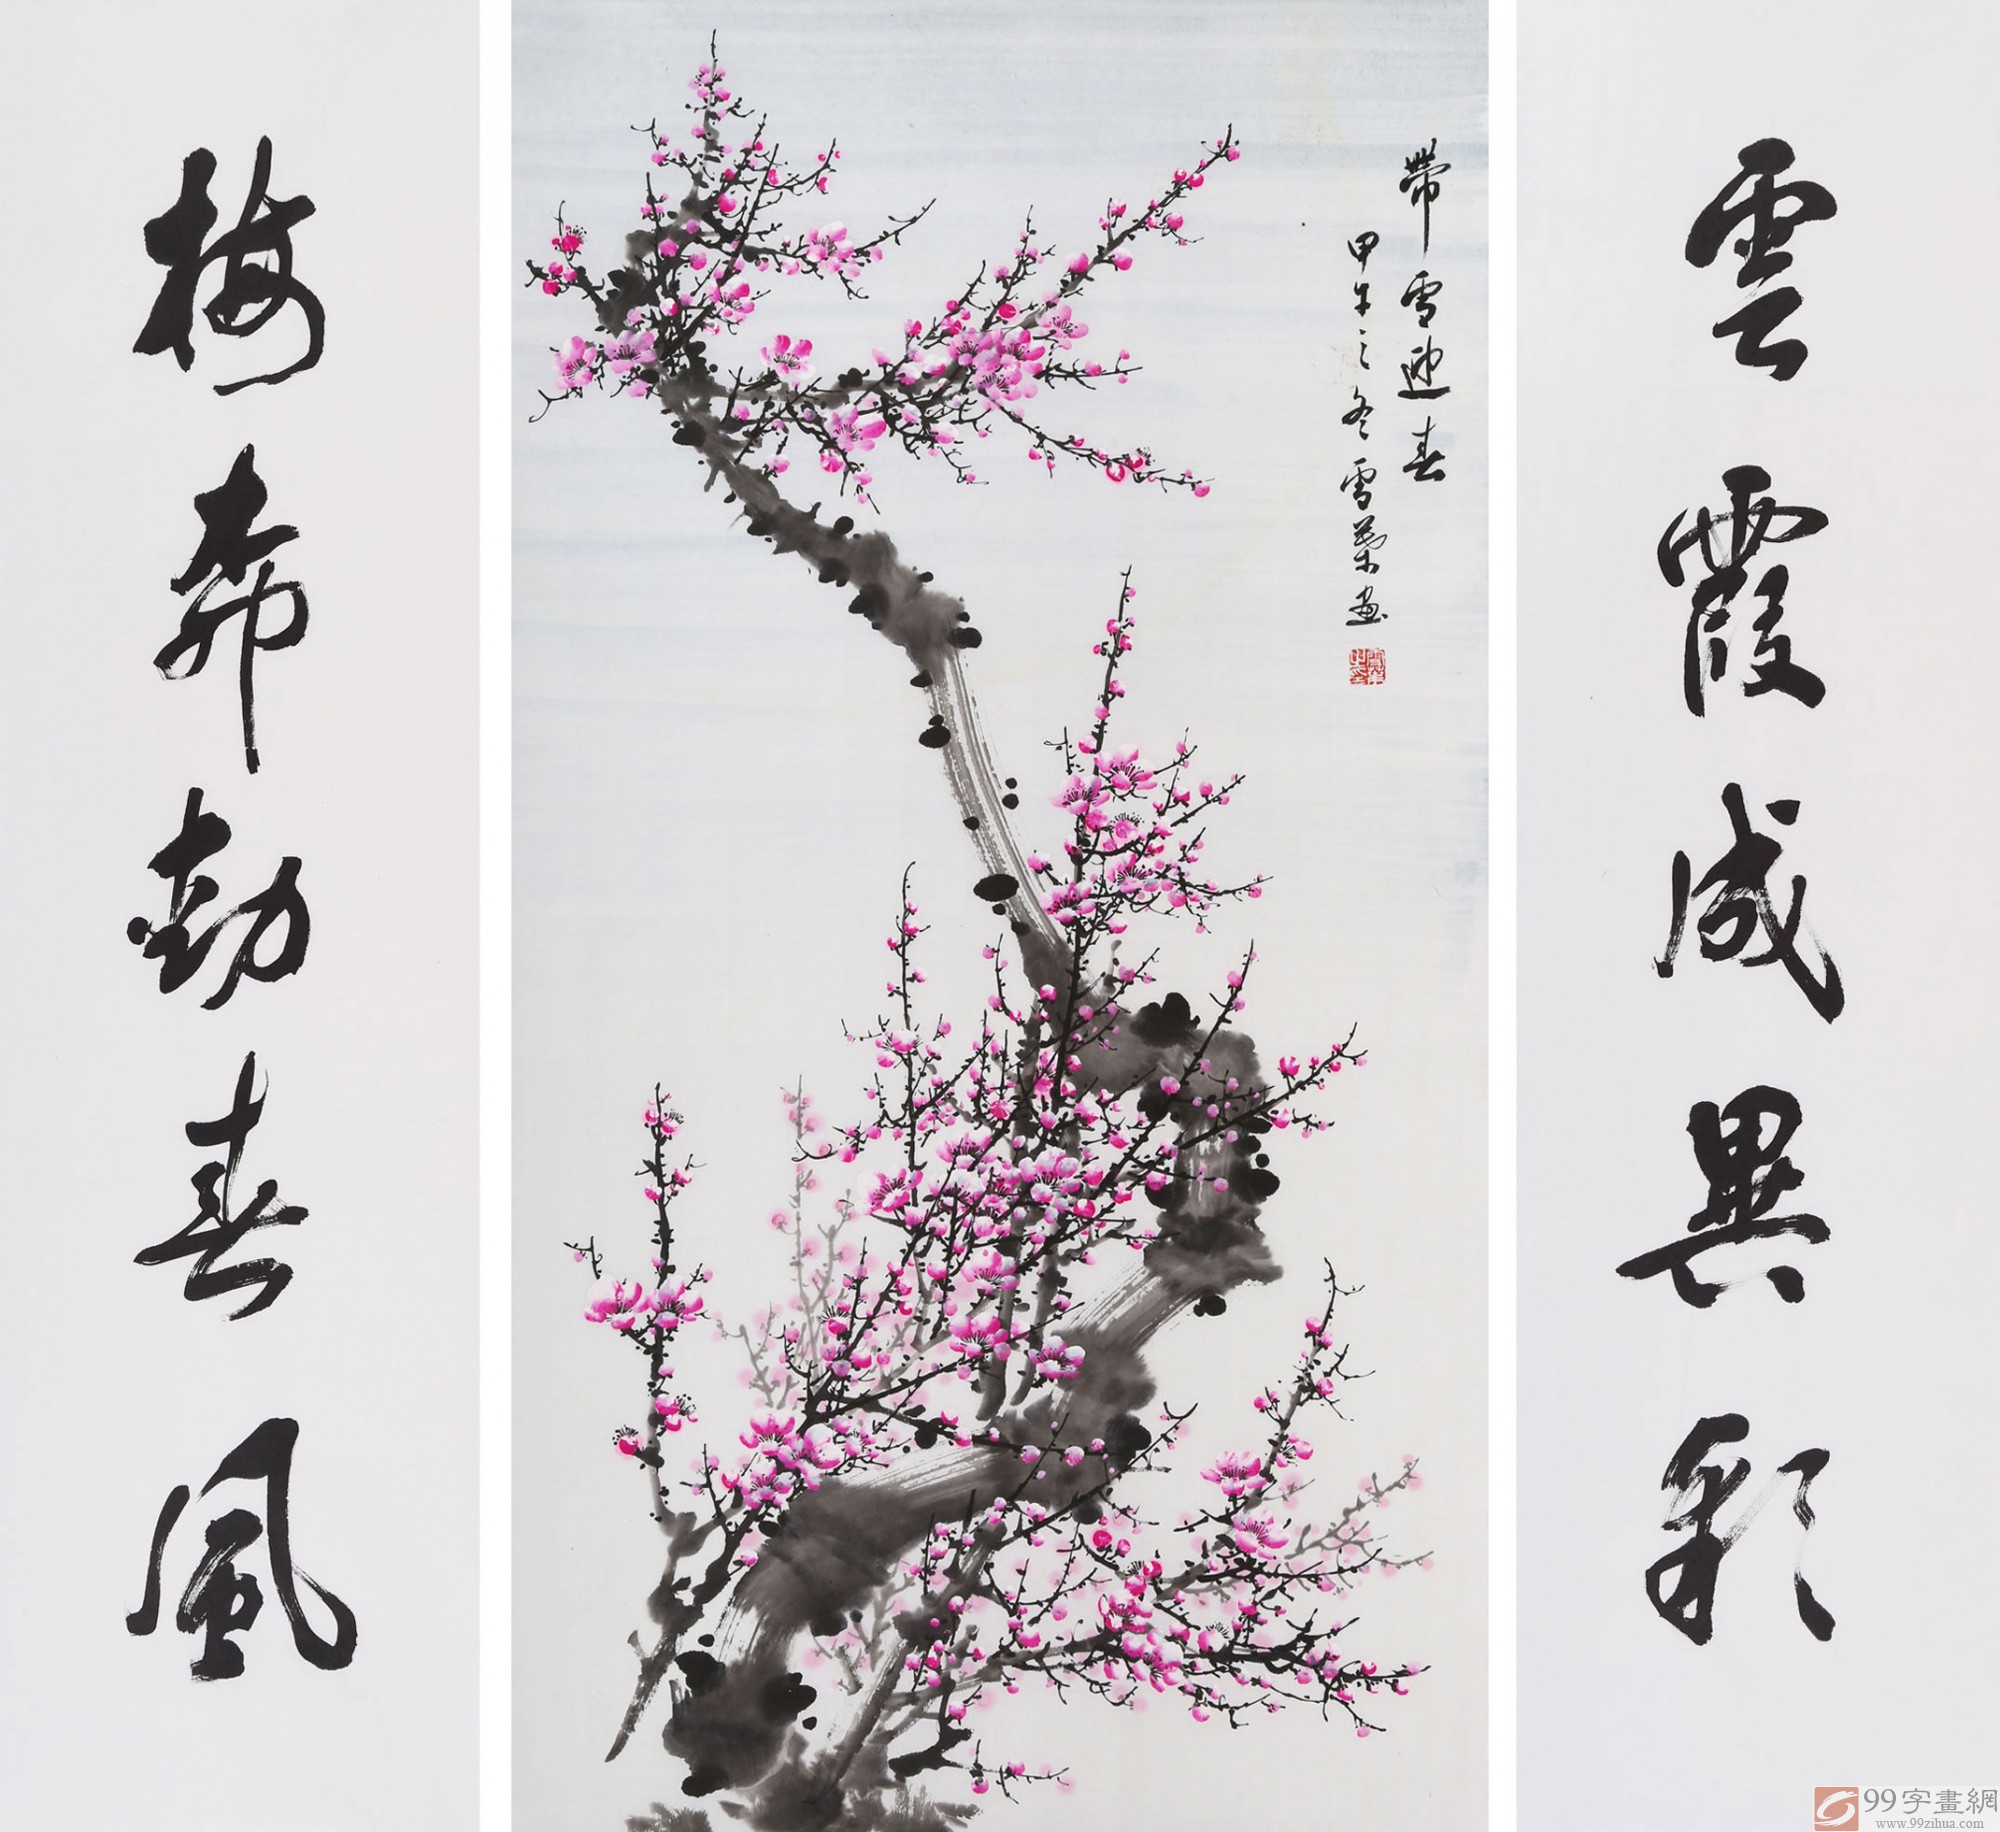 雲霞成異彩
帶雪迎春
甲午之冬雪畫
梅柳動春風
99字畫網
www.99zihua.com